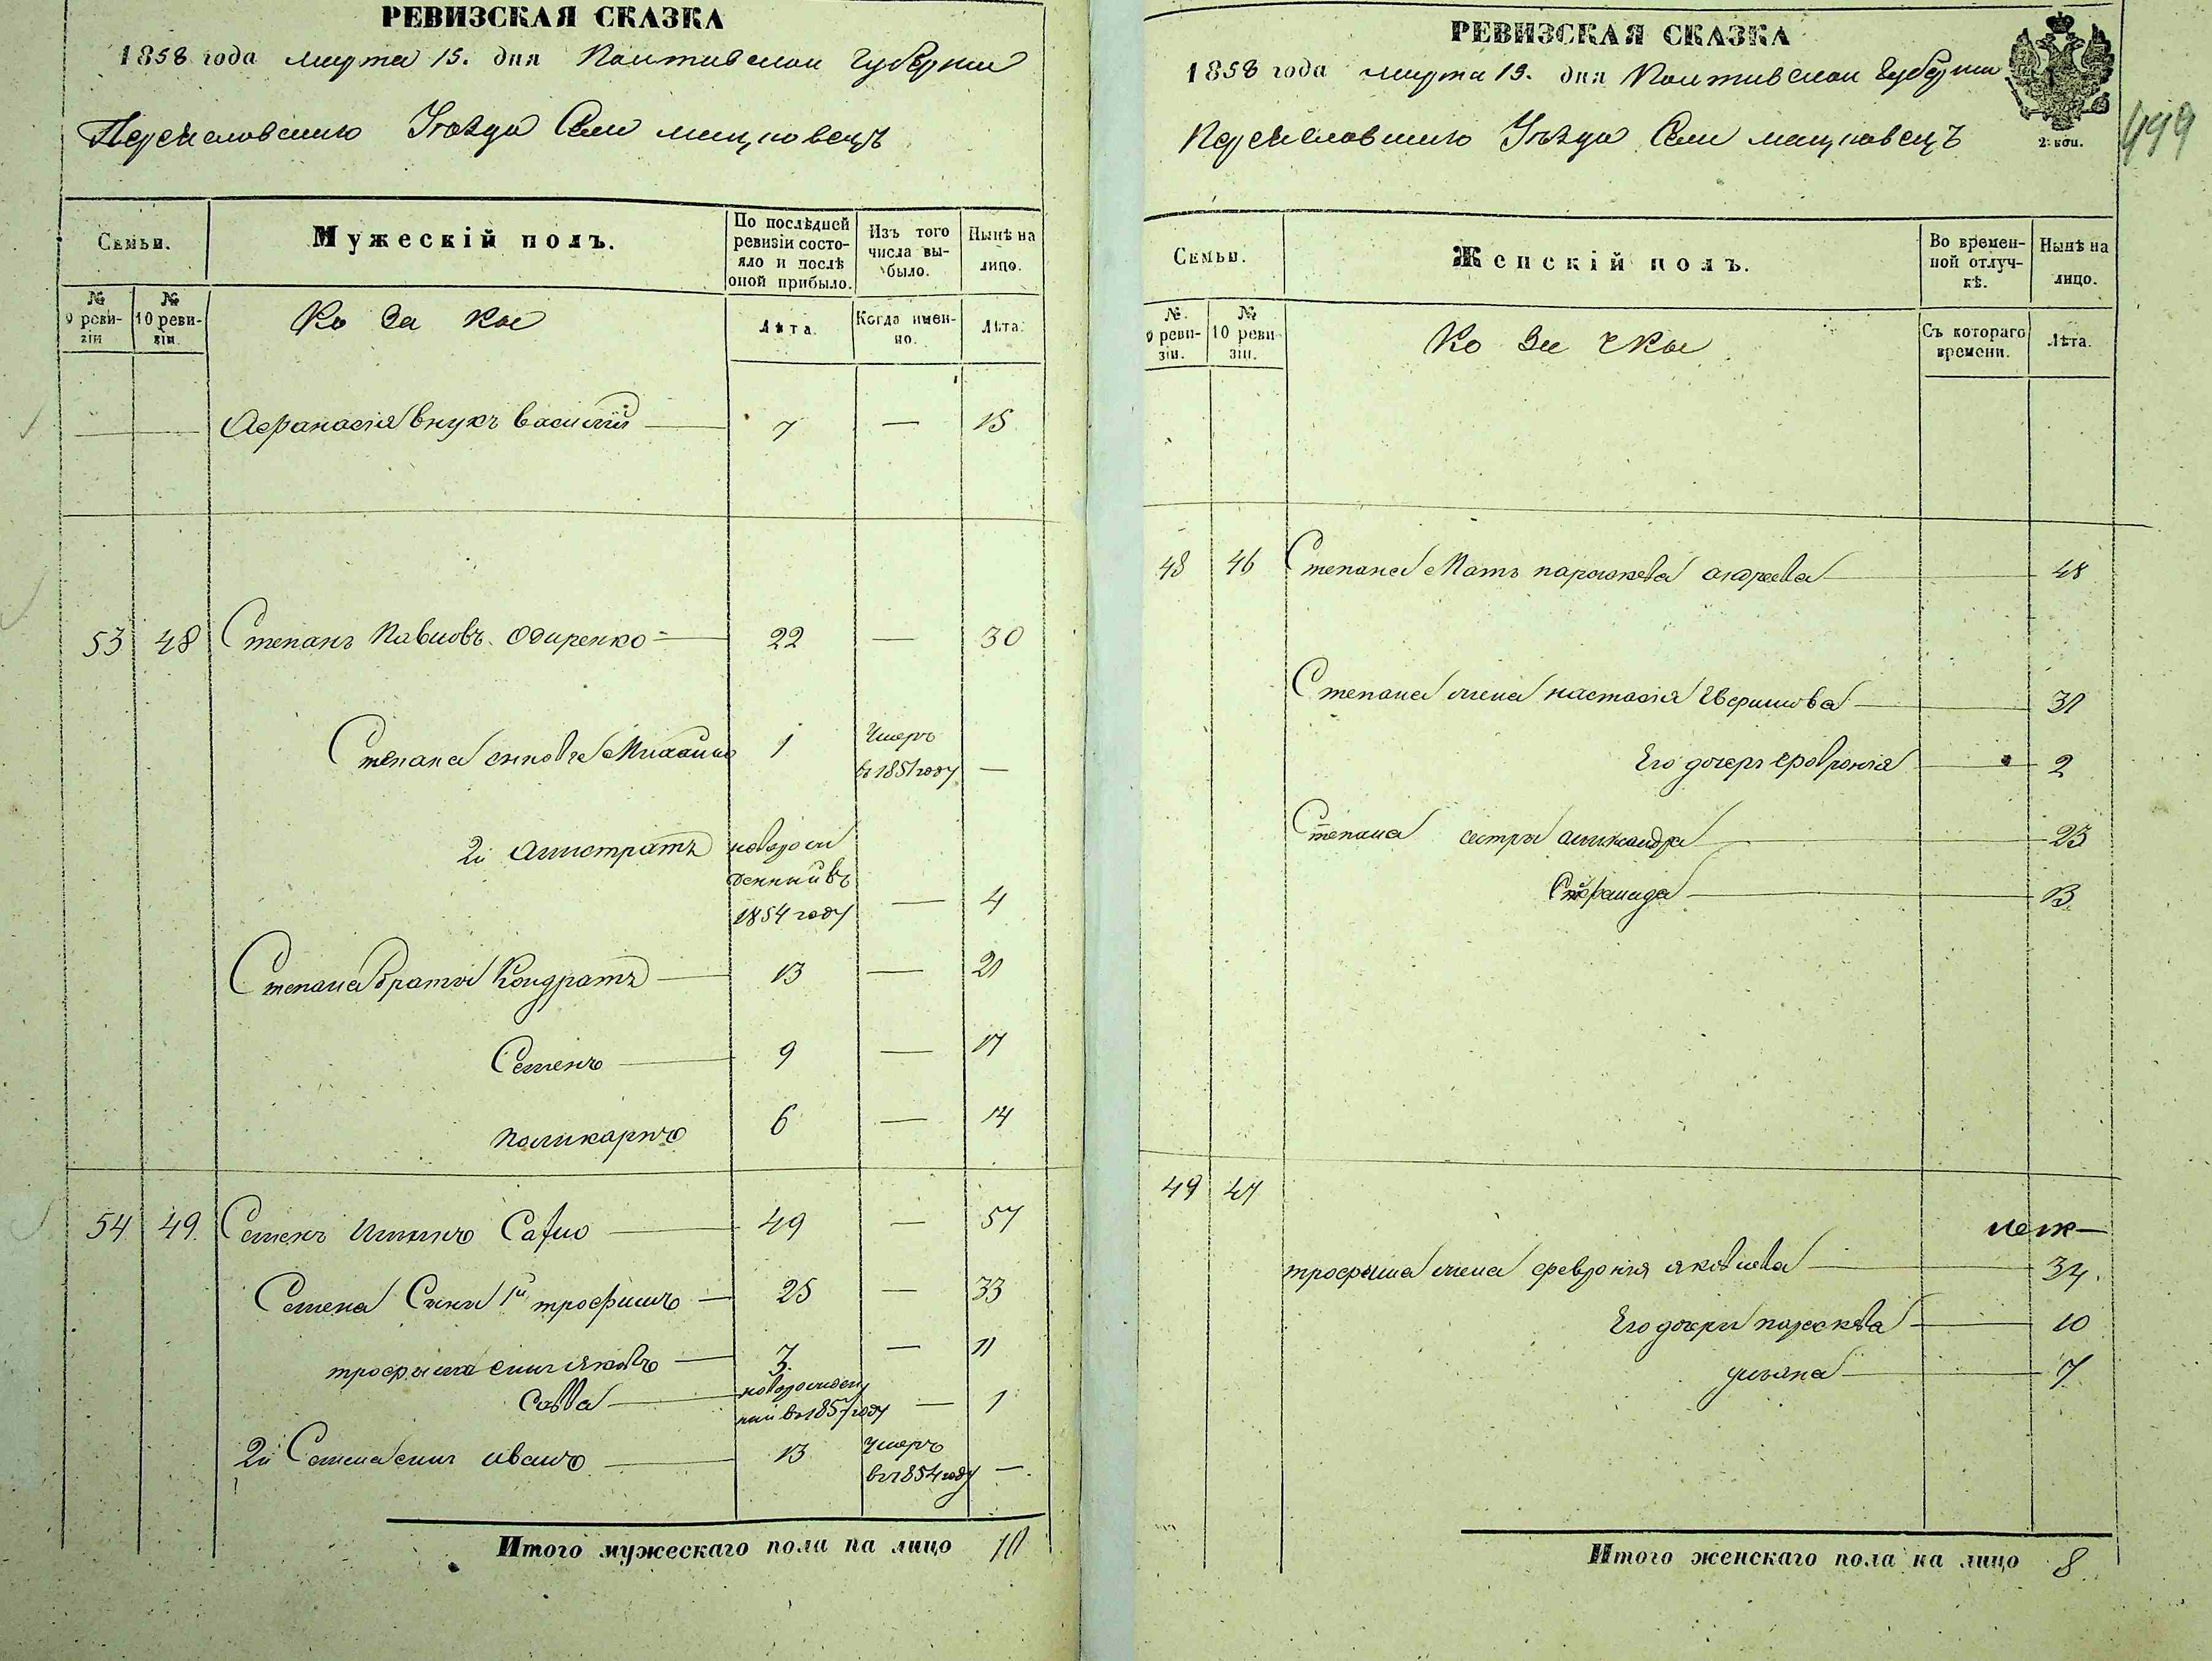 РЕВИЗСКАЯ СКАЗКА
1858 года марта 15. дня Полтавской Губерніи
Переяславскаго Уѣзда Села мацковецъ
Семьи.
Мужескій полъ.
По послѣдней ревизіи состояло и послѣ оной прибыло.
Изъ того числа выбыло.
Нынѣ на лицо.
№ 9 ревизіи
№ 10 ревизіи.
Ко за ки
Лѣта.
Когда именно.
Лѣта.
Афанасія внукъ василій 7 — 15
53 48 Степанъ Павловъ Одиренко 22 — 30
Степана сыновья Михайло 1 Умеръ въ 1851 году —
2й Алистратъ новорожденный въ 1854 году — 4
Степана братья Кондратъ 13 — 21
Семенъ 9 — 17
поликарпъ 6 — 14
54 49 Семенъ Сафло 49 — 57
Семена Сыны 1й трофимъ 25 — 33
трофима сынъ яковъ 3. — 11
Савва новорожденный въ 1857 году — 1
2й Семена сынъ иванъ 13 умеръ въ 1854 году —
Итого мужескаго пола на лицо 10
РЕВИЗСКАЯ СКАЗКА
1858 года марта 15. дня Полтавской Губерніи
Переяславскаго Уѣзда Села мацковецъ
2. коп.
499
Семьи.
Женскій полъ.
Во временной отлучкѣ.
Нынѣ на лицо.
№ 9 ревизіи.
№ 10 ревизіи.
Ко за чки
Съ котораго времени.
Лѣта.
48 46 Степана Мать параскева андреева 48
Степана жена настасія 31
Его дочерь февронія 2
Степана сестры александра 23
Стефанида 13
49 47
трофима жена февронія яковлева 34.
Его дочери параскева 10
ульяна 7
Итого женскаго пола на лицо 8